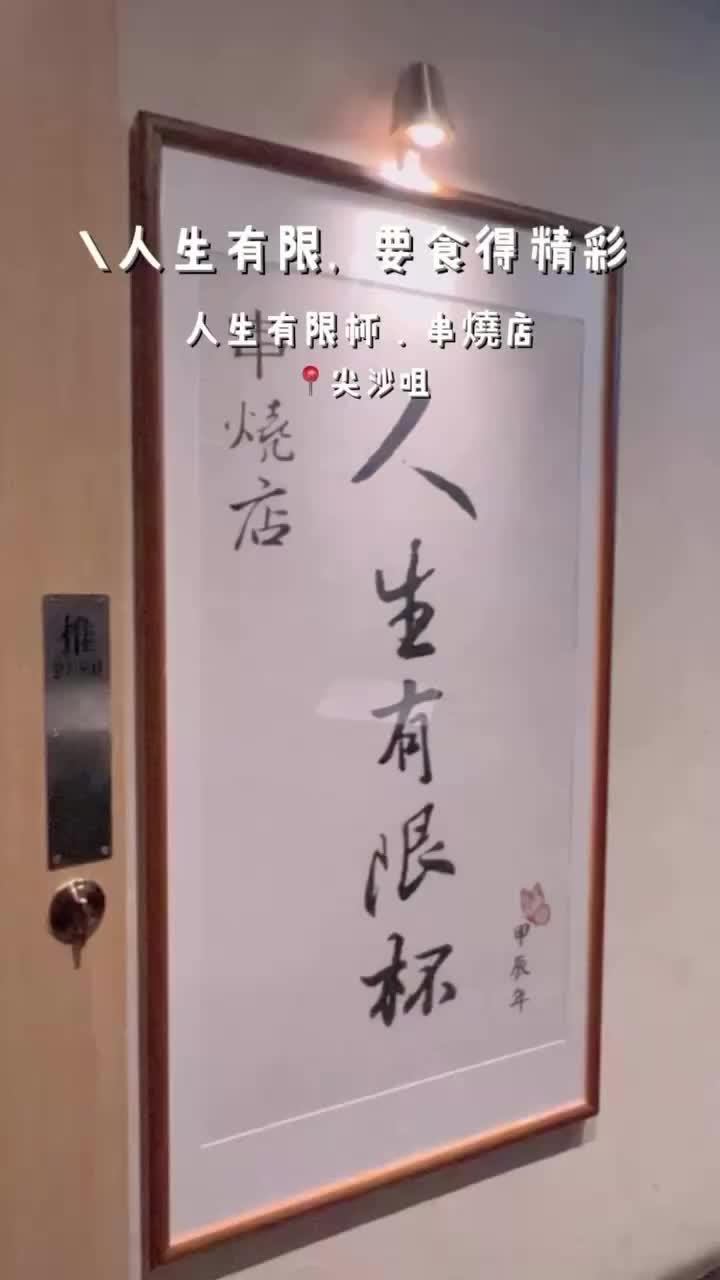 \人生有限, 要食得精彩
人生有限杯．串燒店
📍尖沙咀
人生有限杯
串燒店
甲辰年
推